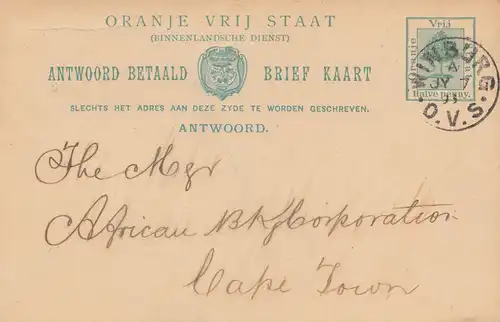 ORANJE VRIJ STAAT
(BINNENLANDSCHE DIENST)
ANTWOORD BETAALD BRIEF KAART
SLECHTS HET ADRES AAN DEZE ZYDE TE WORDEN GESCHREVEN.
ANTWOORD.
Vrij
Oranje Staat
Halve penny.
WINBURG
A
JY 7
O.V.S.
The Mgr
African Bkg Corporation
Cape Town